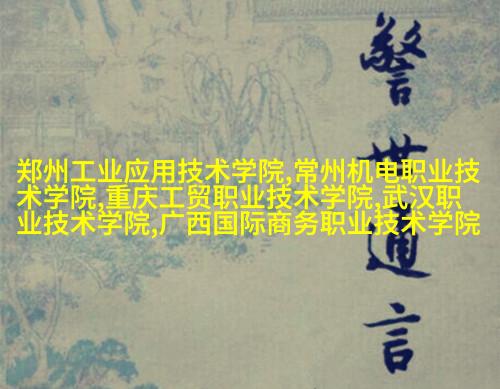 郑州工业应用技术学院,常州机电职业技
术学院,重庆工贸职业技术学院,武汉职
业技术学院,广西国际商务职业技术学院
警世通言